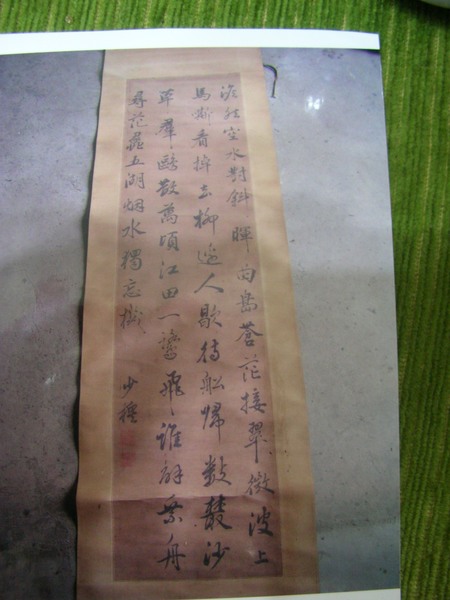 澹然空水對斜暉曲島蒼茫接翠微波上
馬嘶看棹去柳邊人歇待船歸數叢沙
草羣鷗散萬頃江田一鷺飛誰解乘舟
尋范蠡五湖烟水獨忘機
少穆